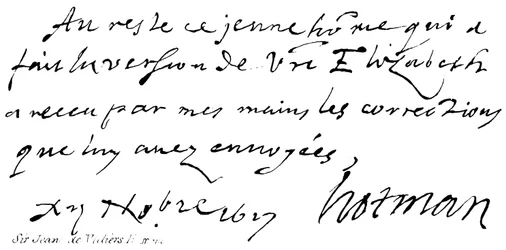 Au reste ce jeune hōme qui a
fait la version de vrē Elizabeth
a receu par mes mains les corrections
que luy avez envoyées,
xxj 9bre 1617 hotman
Sir Jean de Villiers Hotman